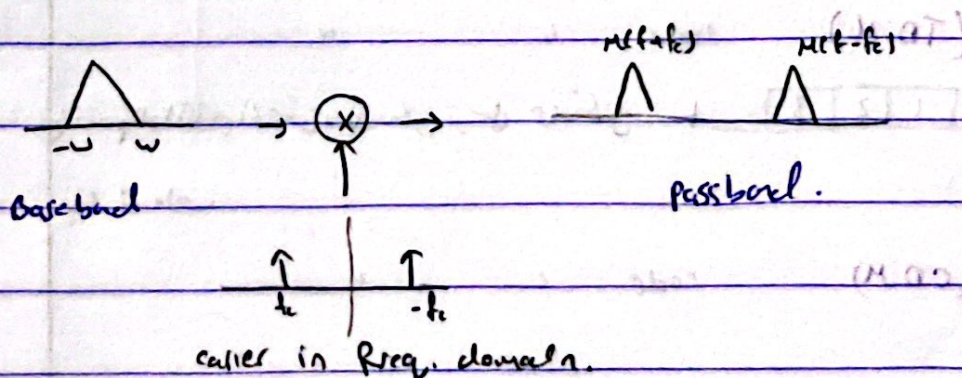 M(f+fc) M(f-fc)
-w w
Baseband
Passband.
fc -fc
carrier in freq. domain.